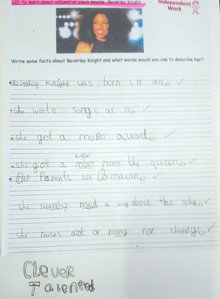 LO: To learn about influential black people. Beverley Knight
Independent Work
Write some facts about Beverley Knight and what words would you use to describe her?
Beverley Knight was born in
she wrote songs at
she got a MOBO award
MBE
she got a mbe from the queen
Her Parents are Jamaican
she made a song about the NHS
she raises alot of money for charity
Clever
Talented